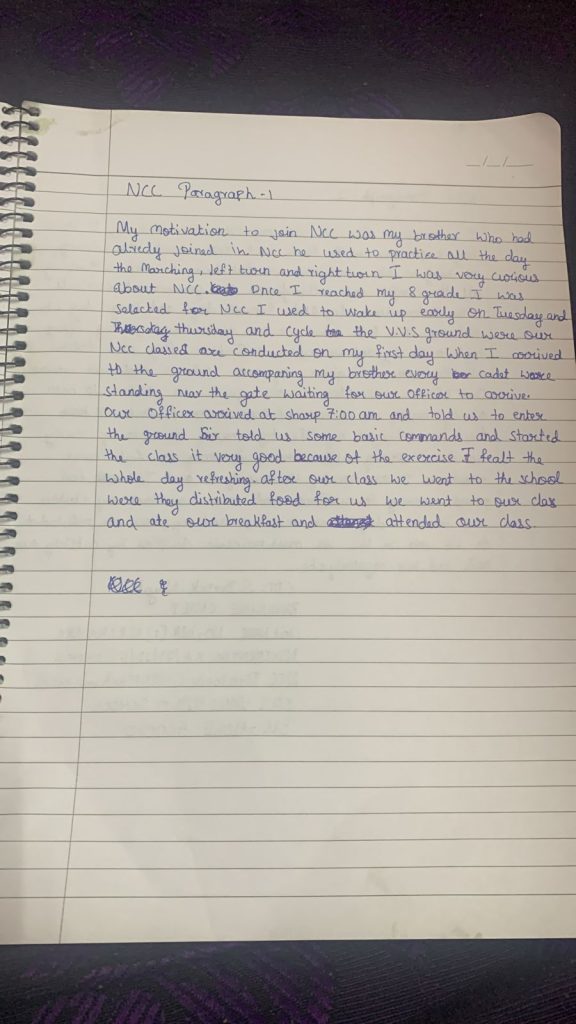 _/_/_
NCC Paragraph -1
My motivation to join NCC was my brother who had
alredy joined in NCC he used to practice all the day
the Marching, left turn and right turn I was very curious
about NCC. Once I reached my 8 grade I was
selected for NCC I used to wake up early on Tuesday and
thursday and cycle the V.V.S ground were our
NCC classes are conducted on my first day when I arrived
to the ground accompaning my brother every cadet were
standing near the gate waiting for our officer to arrive.
Our Officer arrived at sharp 7:00 am and told us to enter
the ground Sir told us some basic commands and started
the class it very good because of the exercise I fealt the
whole day refreshing. after our class we went to the school
were they distributed food for us we went to our clas
and ate our breakfast and attended our class.